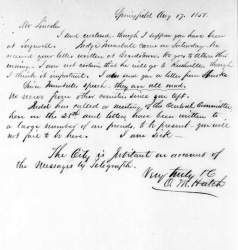 Springfield Aug 17. 1858.
Mr Lincoln
I send enclosed, though I suppose you have been
at Judge Marshall came on Saturday. He
received your letter written at Beardstown. He goes to attend this
evening. I am not certain that he will go to though
I think it important. I send you a letter from
Since Trumbull's speech, they are all mad.
No news from other counties since you left.
has called a meeting of the Central Committee
here on the 25th and letters have been written to
a large number of our friends, to be present - you will
not fail to be here. I am sick -
The City is Jubilant on account of
the messages by Telegraph.
Very truly
O. M. Hatch